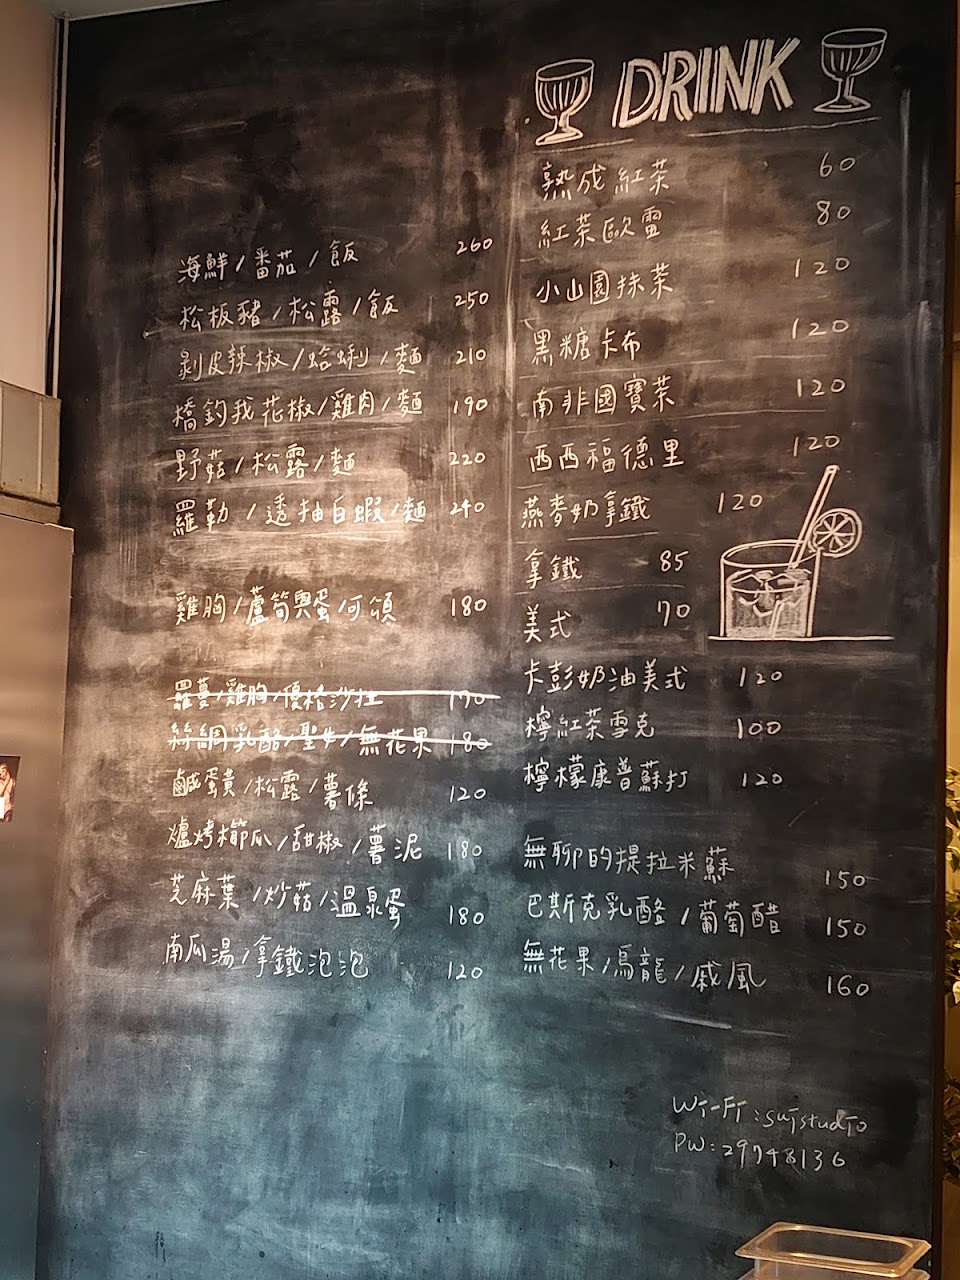 海鮮/番茄/飯 260
松板豬/松露/飯 250
剝皮辣椒/蛤蜊/麵 210
橋鈞我花椒/雞肉/麵 190
野菇/松露/麵 220
羅勒/透抽白蝦/麵 240
雞胸/蘆筍與蛋/可頌 180
羅蔓/雞胸/優格沙拉 170
絲綢乳酪/聖女/無花果 180
鹹蛋黃/松露/薯條 120
爐烤櫛瓜/甜椒/薯泥 180
芝麻葉/炒菇/溫泉蛋 180
南瓜湯/拿鐵泡泡 120
DRINK
熟成紅茶 60
紅茶歐雷 80
小山園抹茶 120
黑糖卡布 120
南非國寶茶 120
西西福德里 120
燕麥奶拿鐵 120
拿鐵 85
美式 70
卡彭奶油美式 120
檸紅茶雪克 100
檸檬康普蘇打 120
無聊的提拉米蘇 150
巴斯克乳酪/葡萄醋 150
無花果/烏龍/戚風 160
WI-FI:sujstudio
PW:29748136